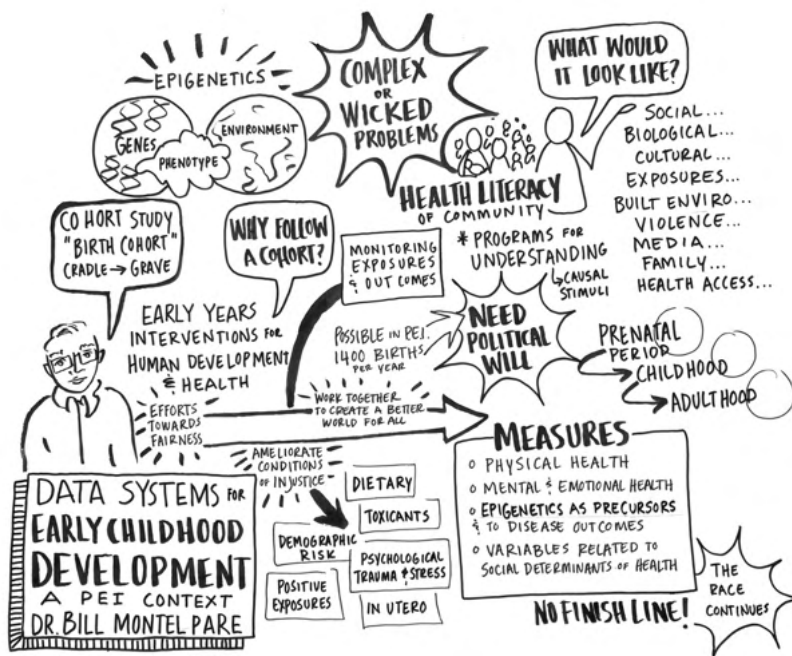 EPIGENETICS
GENES
PHENOTYPE
ENVIRONMENT
COMPLEX
OR
WICKED
PROBLEMS
WHAT WOULD
IT LOOK LIKE?
SOCIAL...
BIOLOGICAL...
CULTURAL...
EXPOSURES...
BUILT ENVIRO...
VIOLENCE...
MEDIA...
FAMILY...
HEALTH ACCESS...
HEALTH LITERACY
OF COMMUNITY
* PROGRAMS FOR
UNDERSTANDING
↳ CAUSAL
STIMULI
COHORT STUDY
"BIRTH COHORT"
CRADLE → GRAVE
WHY FOLLOW
A COHORT?
MONITORING
EXPOSURES
& OUTCOMES
EARLY YEARS
INTERVENTIONS FOR
HUMAN DEVELOPMENT
& HEALTH
POSSIBLE IN PEI.
1400 BIRTHS
PER YEAR
NEED
POLITICAL
WILL
PRENATAL
PERIOD
CHILDHOOD
ADULTHOOD
EFFORTS
TOWARDS
FAIRNESS
WORK TOGETHER
TO CREATE A BETTER
WORLD FOR ALL
AMELIORATE
CONDITIONS
OF INJUSTICE
DIETARY
TOXICANTS
DEMOGRAPHIC
RISK
PSYCHOLOGICAL
TRAUMA & STRESS
POSITIVE
EXPOSURES
IN UTERO
MEASURES
○ PHYSICAL HEALTH
○ MENTAL & EMOTIONAL HEALTH
○ EPIGENETICS AS PRECURSORS
& TO DISEASE OUTCOMES
○ VARIABLES RELATED TO
SOCIAL DETERMINANTS OF HEALTH
NO FINISH LINE!
THE
RACE
CONTINUES
DATA SYSTEMS FOR
EARLY CHILDHOOD
DEVELOPMENT
A PEI CONTEXT
DR. BILL MONTELPARE